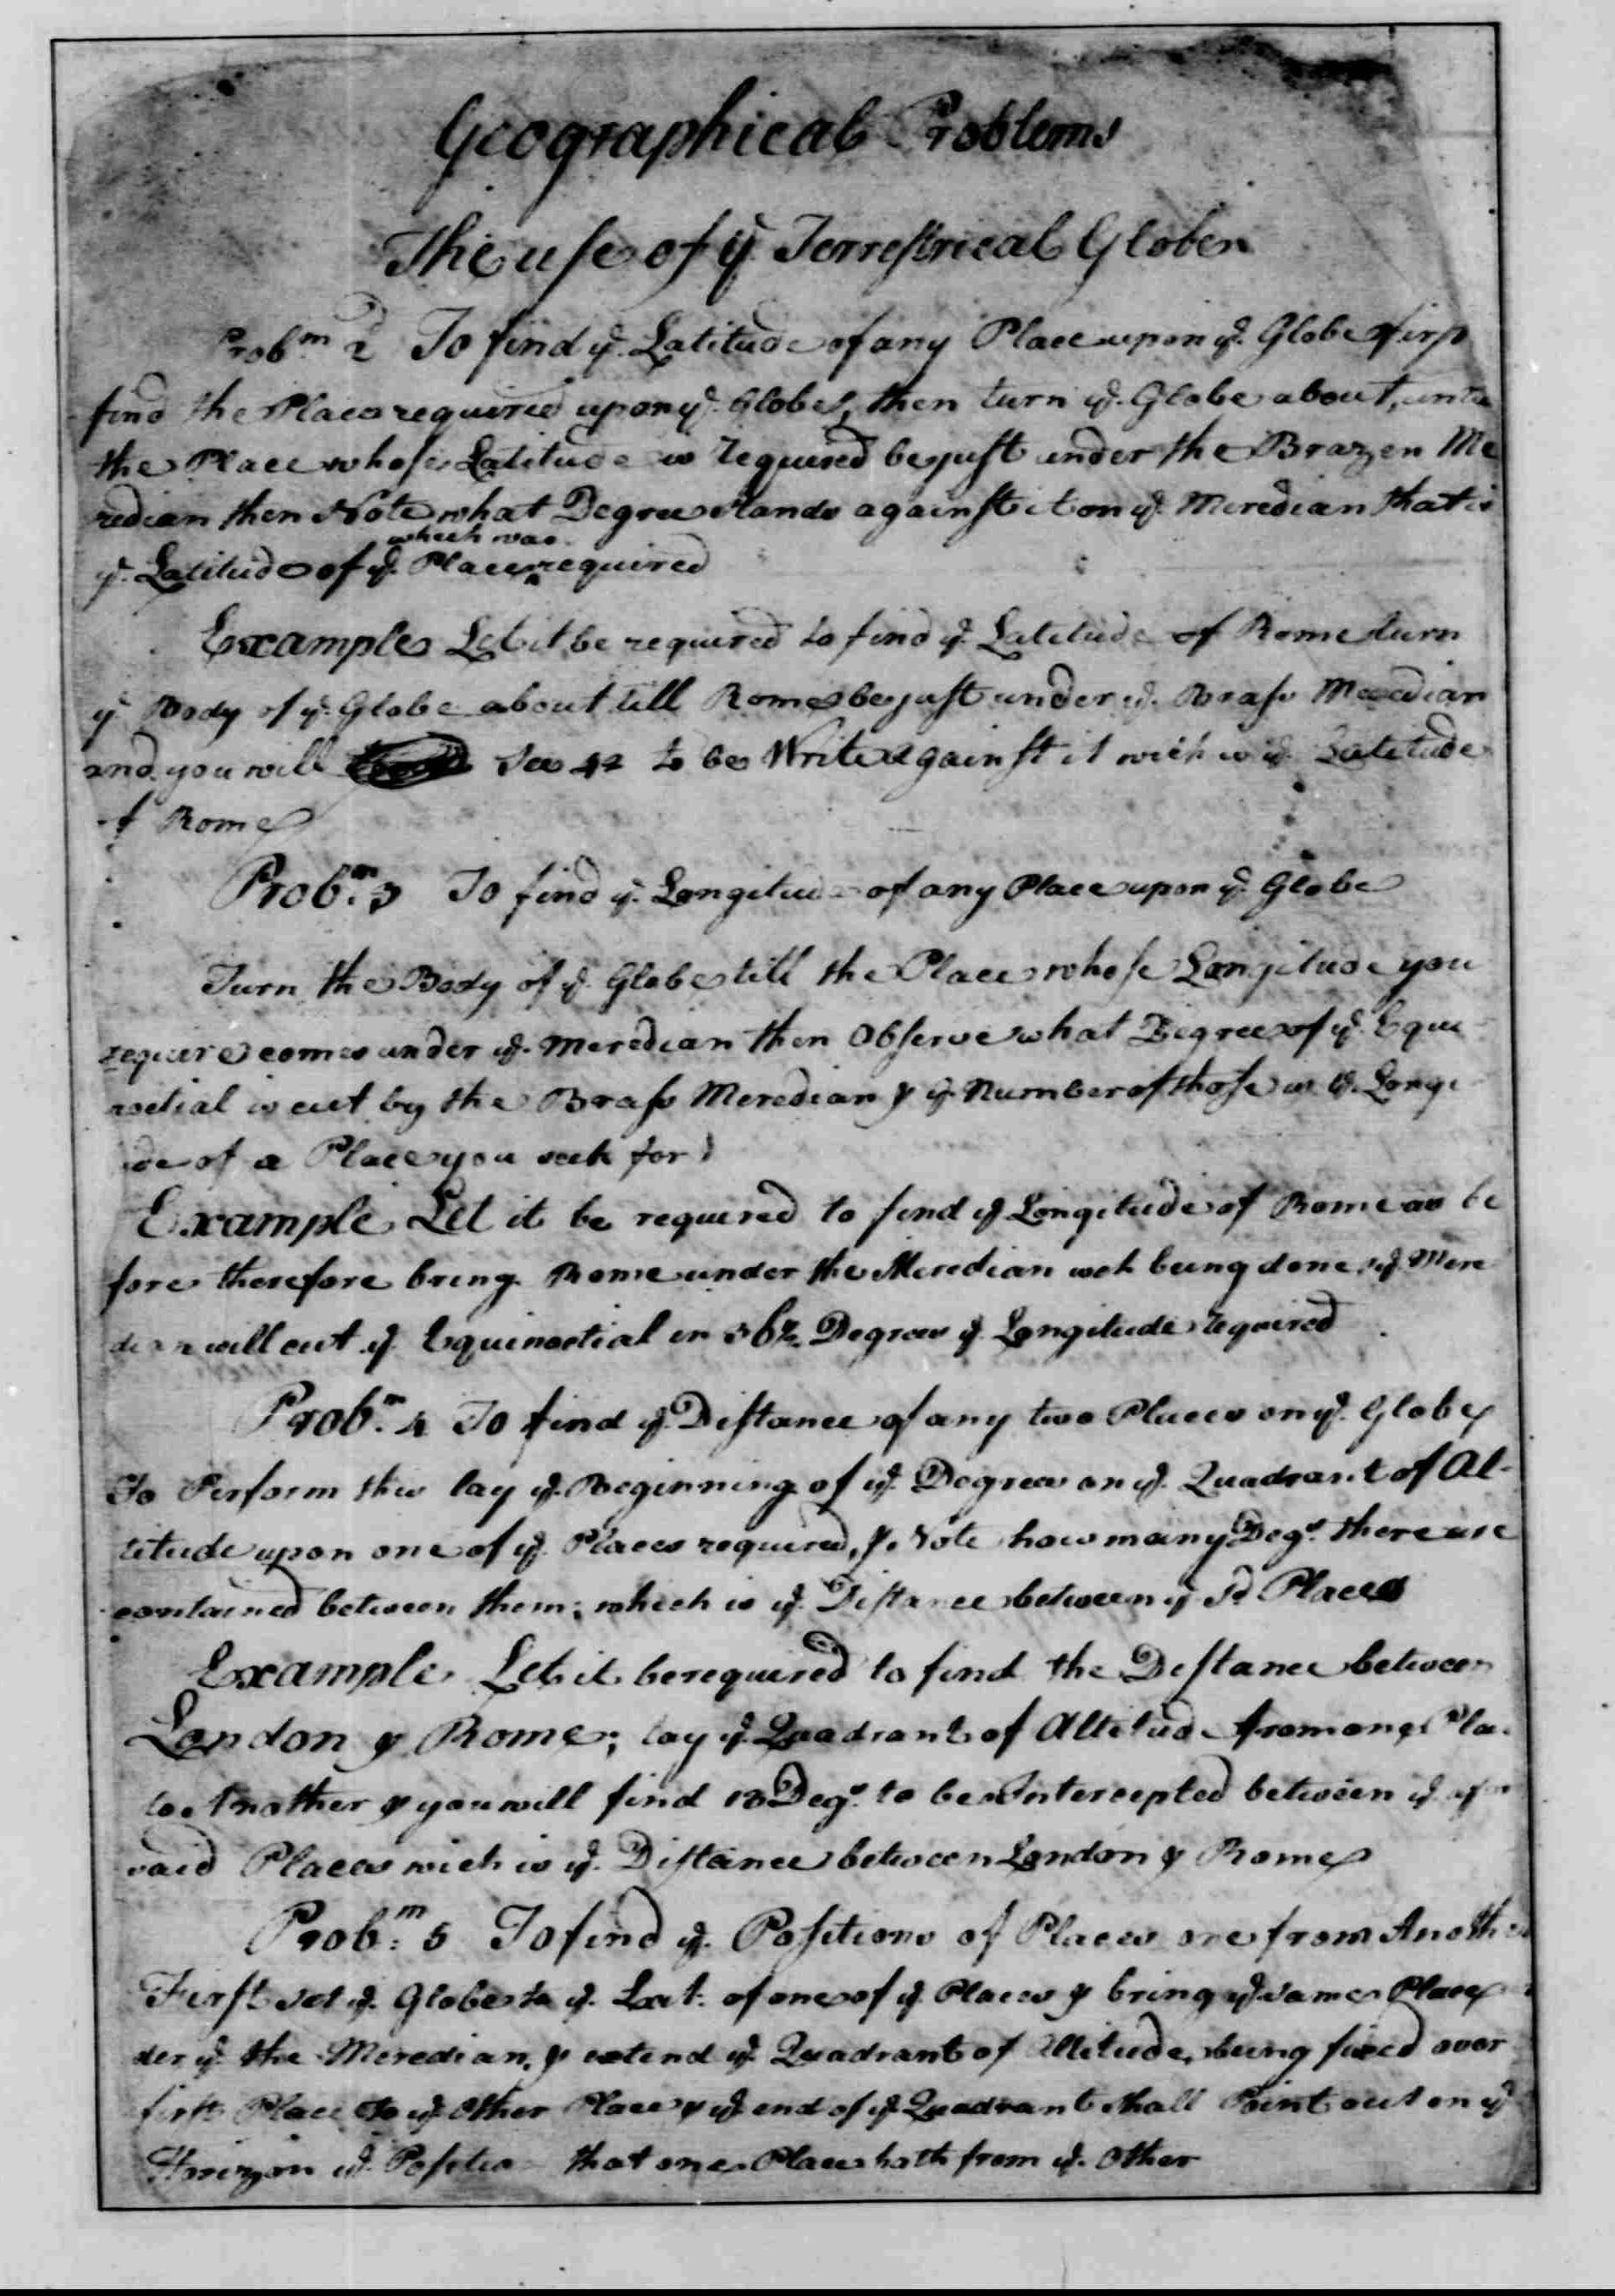 Geographical Problems
The use of ye. Terrestrical Globe
Probm 2 To find ye. Latitude of any Place upon ye. Globe first
find the Place required upon ye. Globe, then turn ye. Globe about, untu
the Place whose Latitude is required be just under the Brazen Me
redian then Note what Degree stands against it on ye. Meredian that is
which was
ye. Latitude of ye. Place ^ required
Example Let it be required to find ye. Latitude of Rome turn
ye Body of ye. Globe about till Rome be just under ye. Brass Meredian
and you will See 42 to be Write against it wich is ye. Latitude
of Rome
Probm. 3 To find ye. Longitude of any Place upon ye. Globe
Turn the Body of ye. Globe till the Place whose Longitude you
require comes under ye. Meredian then Observe what Degree of ye. Equi
noctial is cut by the Brass Meredian & ye. Number of those is ye. Longi
ude of a Place you seek for
Example Let it be required to find ye Longitude of Rome as be
fore therefore bring Rome under the Meredian wch being done, ye. Mere
dian will cut ye. Equinoctial in Degrees ye. Longitude required
Probm. 4 To find ye. Distance of any two Places on ye. Globe
To Perform this lay ye. Beginning of ye. Degrees on ye. Quadrant of Al-
titude upon one of ye. Places required, & Note how many Degs. there are
contained between them; which is ye. Distance between ye Sd. Places
Example Let it be required to find the Distance between
London & Rome; lay ye. Quadrant of Altitude from one Pla
to Another & you will find 13 Degs. to be Intercepted between ye. afore
said Places wich is ye. Distance between London & Rome
Probm: 5 To find ye. Positions of Places one from Another
First set ye. Globe to ye. Lat: of one of ye. Places & bring ye. same Place un
der ye. the Meredian, & extend ye. Quadrant of Altitude, being fixed over
first Place to ye. Other Place & ye. end of ye. Quadrant shall Point out on ye
Horizon ye. Position that one Place hath from ye. Other